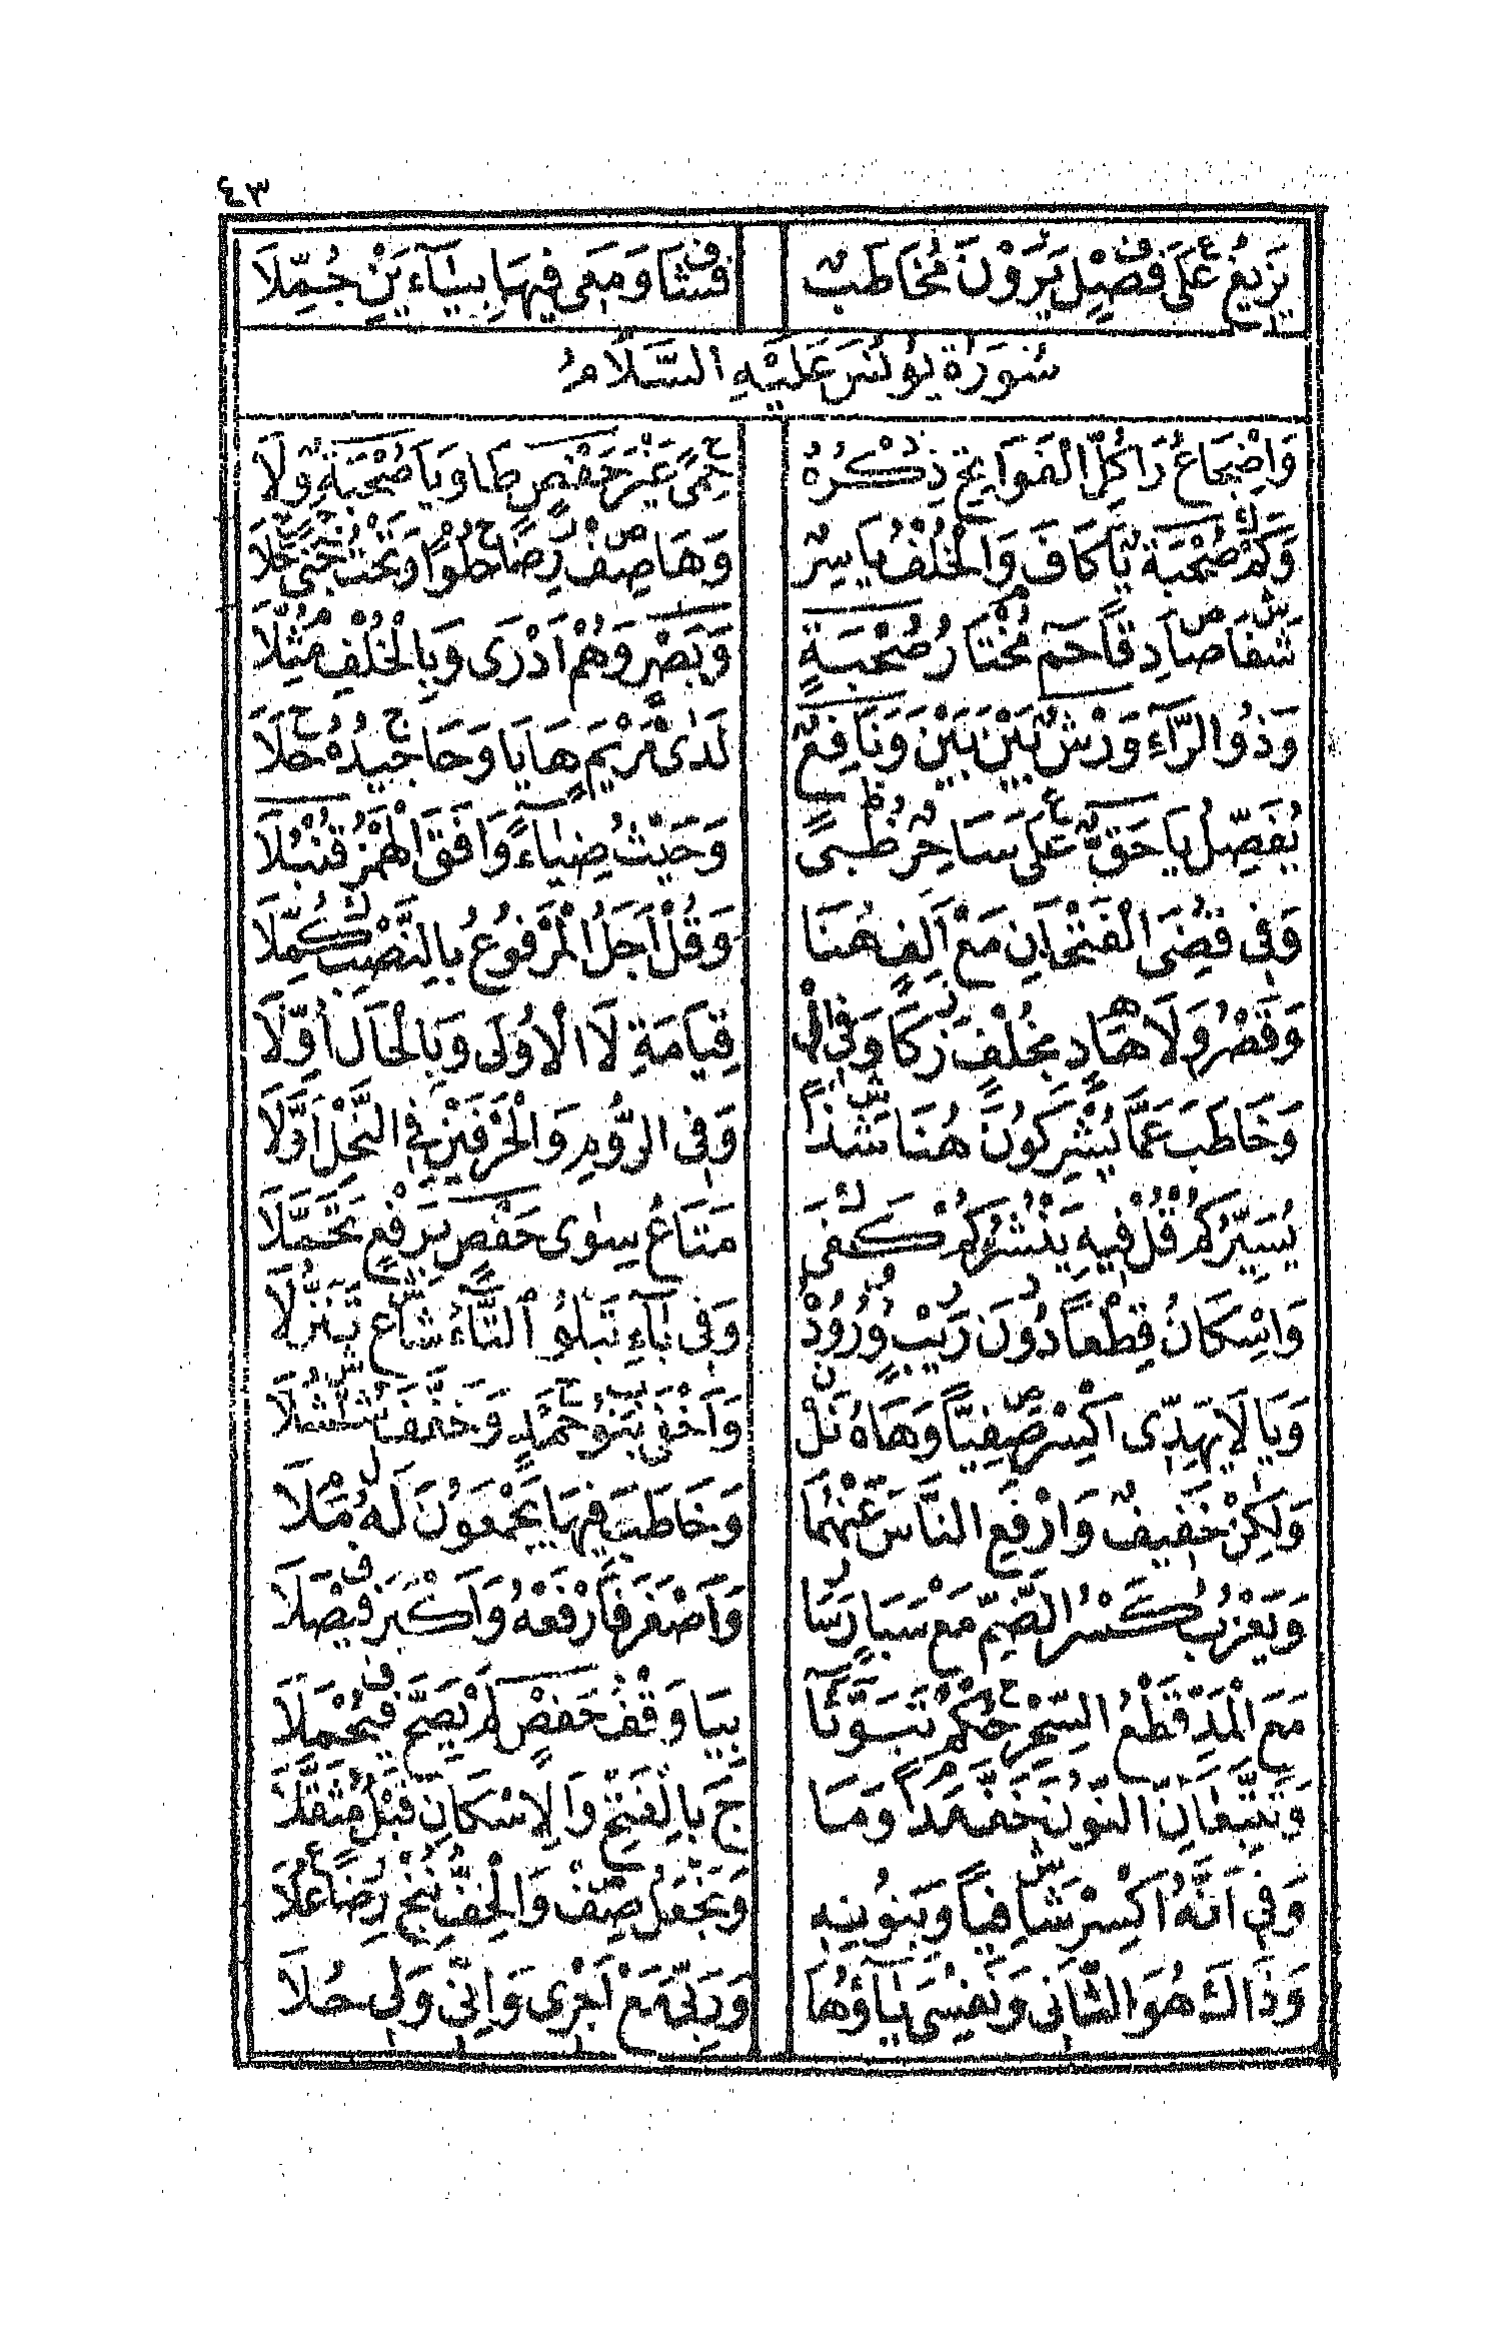 ٤٣
يَزِيغُ عَلَى فَصْلٍ يَرَوْنَ مُخَاطَبٌ فَشَا وَمَعِى فِيهَا بِيَاءَيْنِ جُمِّلَا
سُورَةُ يُونُسَ عَلَيْهِ السَّلَامُ
وَاِضْجَاعُ رَا كُلِّ الْفَوَاتِحِ ذِكْرُهُ حِمًى غَيْرَ حَفْصٍ طَا وَيَا صُحْبَةٌ وَلَا
وَكَمْ صُحْبَةٍ يَا كَافَ وَالْخُلْفُ يَاسِرٌ وَهَا صِفْ رِضًا حُلْوًا وَتَحْتَ جَنًى حَلَا
شَفَا صَادِقًا حٰمٓ مُخْتَارُ صُحْبَةٍ وَبَصْرٍ وَهُمْ اَدْرٰى وَبِالْخُلْفِ مُثِّلَا
وَذُو الرَّاءِ وَرْشٌ بَيْنَ بَيْنَ وَنَافِعٌ لَدٰى مَرْيَمٍ هَايَا وَحَا جِيدُهُ حَلَا
يُفَصِّلُ يَا حَقٍّ عُلًى سَاحِرٌ ظُبًى وَحَيْثُ ضِيَاءً وَافَقَ الْهَمْزُ قُنْبُلَا
وَفِى قُضِىَ الْفَتْحَانِ مَعْ اَلِفٍ هُنَا وَقُلْ اَجَلُ الْمَرْفُوعُ بِالنَّصْبِ كُمِّلَا
وَقَصْرُ وَلَا هَادٍ بِخُلْفٍ زَكَا وَفِى الْ قِيَامَةِ لَا الْاُولٰى وَبِالْحَالِ اُوِّلَا
وَخَاطَبَ عَمَّا يُشْرِكُونَ هُنَا شَذًا وَفِى الرُّومِ وَالْحَرْفَيْنِ فِى النَّحْلِ اَوَّلَا
يُسَيِّرُكُمْ قُلْ فِيهِ يَنْشُرُكُمْ كَفٰى مَتَاعُ سِوٰى حَفْصٍ بِرَفْعٍ تَحَمَّلَا
وَاِسْكَانُ قِطْعًا دُونَ رَيْبٍ وُرُودُهُ وَفِى بَاءِ تَبْلُو التَّاءُ شَاعَ تَنَزُّلَا
وَيَا لَا يَهِدِّى اكْسِرْ صَفِيًّا وَهَاهُ نَلْ وَاَخْفٰى بَنُو حَمْدٍ وَخُفِّفَ شُلْشُلَا
وَلٰكِنْ خَفِيفٌ وَارْفَعِ النَّاسَ عَنْهُمَا وَخَاطَبَ فِيهَا يَجْمَعُونَ لَهُ مُلَا
وَيَعْزُبُ كَسْرُ الضَّمِّ مَعْ سَبَإٍ رَسَا وَاَصْغَرَ فَارْفَعْهُ وَاَكْبَرَ فَيْصَلَا
مَعَ الْمَدِّ قَطْعُ السِّحْرِ حُكْمٌ تَبَوَّئَا بِيَا وَقْفُ حَفْصٍ لَمْ يَصِحَّ فَيُحْمَلَا
وَتَتَّبِعَانِ النُّونُ خَفَّ مَدًا وَمَا جَ بِالْفَتْحِ وَالْاِسْكَانِ قَبْلُ مُثَقَّلَا
وَفِى اَنَّهُ اكْسِرْ شَافِيًا وَبِنُونِهِ وَنَجْعَلُ صِفْ وَالْخِفُّ نُنْجِ رِضًا عَلَا
وَذَاكَ هُوَ الثَّانِى وَنَفْسِى يَاؤُهَا وَرَبِّى مَعْ اَجْرِى وَاِنِّى وَلِى حُلَا